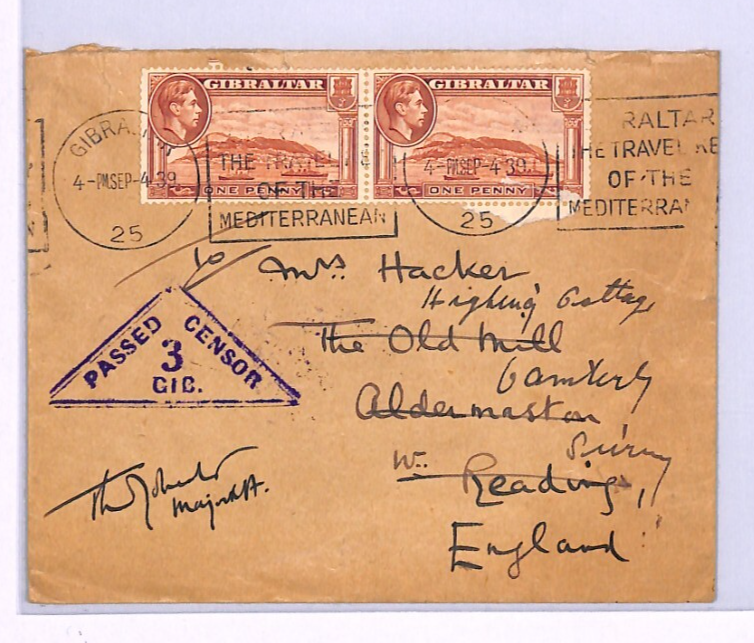 GIBRALTAR GIBRALTAR
ONE PENNY ONE PENNY
GIBRA
4-PM SEP-4 39
25
THE TRAVEL
OF THE
MEDITERRANEAN
4-PM SEP-4 39
25
RALTAR
THE TRAVEL KE
OF THE
MEDITERRA
to
Mrs Hacker
Cottage
The Old Mill
Camberly
Aldermaston
Surrey
Nr. Reading,
England
PASSED CENSOR
3
GIB.
Major RA.